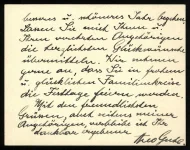 besseres u. schöneres Jahr begehen.
Lassen Sie mich Ihnen u.
Ihren verehrten Angehörigen
die herzlichsten Glückwünsche
übermitteln. Wir nehmen
gerne an, dass Sie in frohem
u. glücklichem Familienkreis
die Festtage feiern werden.
Mit den freundlichsten
Grüssen, auch seitens meiner
Angehörigen, verbleibe ich Ihr
dankbar ergebener